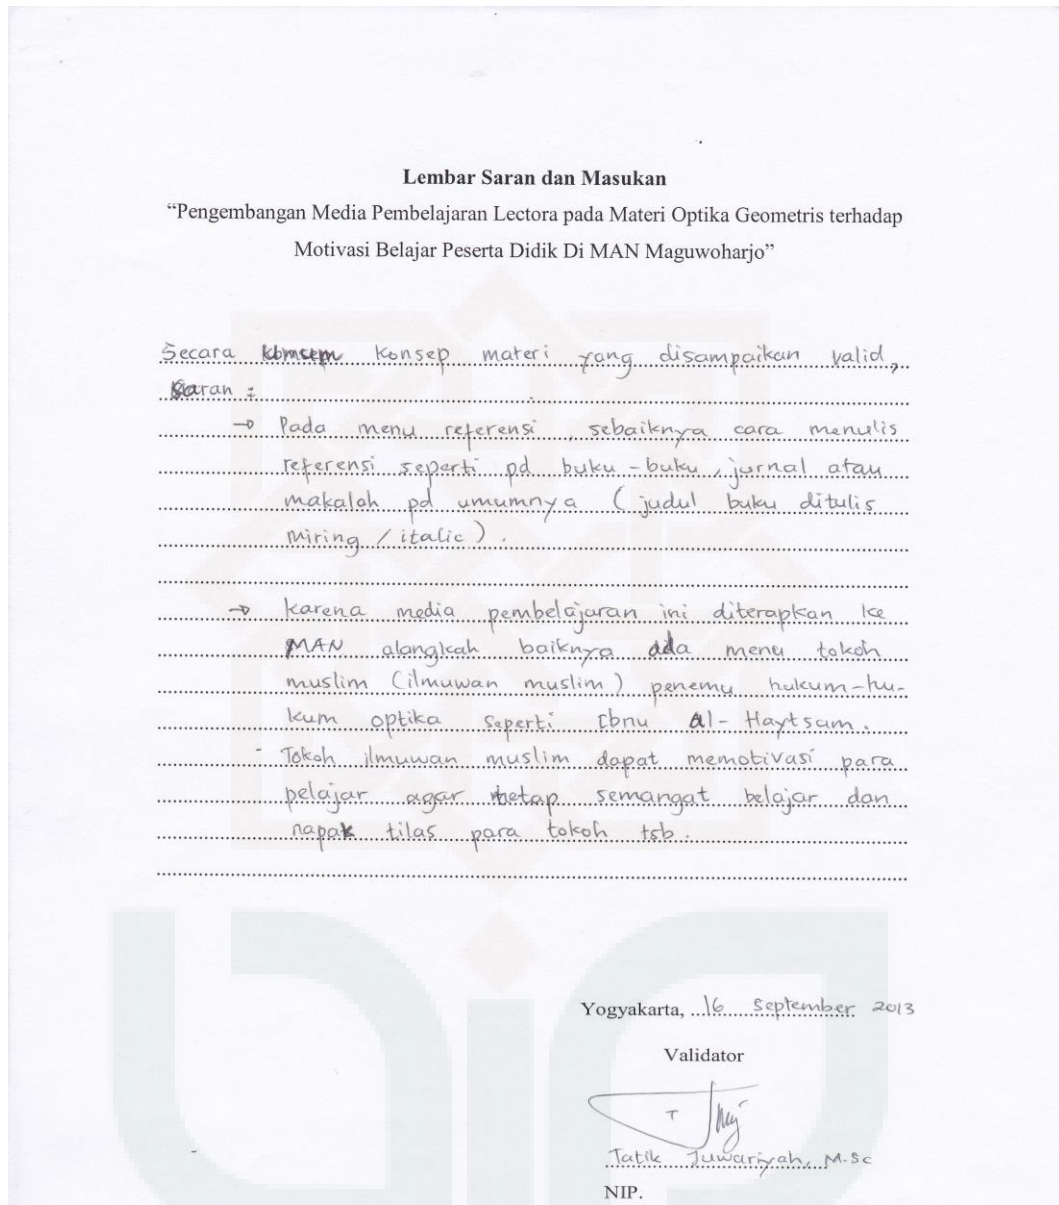 Lembar Saran dan Masukan
“Pengembangan Media Pembelajaran Lectora pada Materi Optika Geometris terhadap
Motivasi Belajar Peserta Didik Di MAN Maguwoharjo”
Secara konsep materi yang disampaikan valid,
Saran :
→ Pada menu referensi, sebaiknya cara menulis
referensi seperti pd buku-buku, jurnal atau
makalah pd umumnya (judul buku ditulis
miring / italic).
→ Karena media pembelajaran ini diterapkan ke
MAN alangkah baiknya ada menu tokoh
muslim (ilmuwan muslim) penemu hukum-hu-
kum optika seperti Ibnu al-Haytsam.
- Tokoh ilmuwan muslim dapat memotivasi para
pelajar agar tetap semangat belajar dan
napak tilas para tokoh tsb.
Yogyakarta, 16 September 2013
Validator
Tatik Juwariyah, M.Sc
NIP.